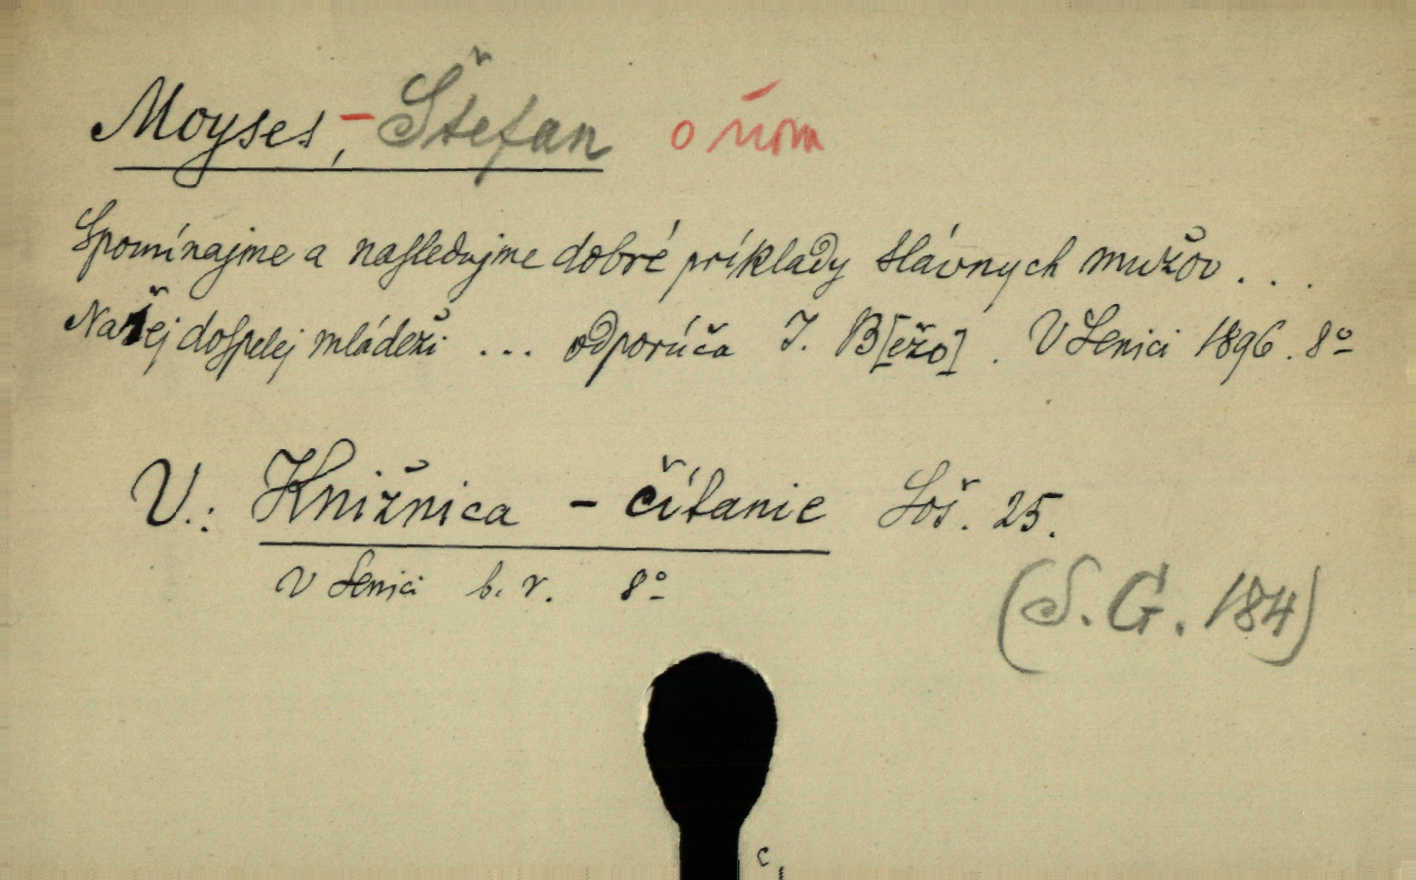 Moyses, - Štefan o ňom
Spomínajme a nasledujme dobré príklady slávnych mužov . . .
Našej dospelej mládeži ... odporúča J. B[ežo]. V Senici 1896. 8º
V.: Knižnica - čítanie Soš. 25.
V Senici b. r. 8º
(S. G. 184)